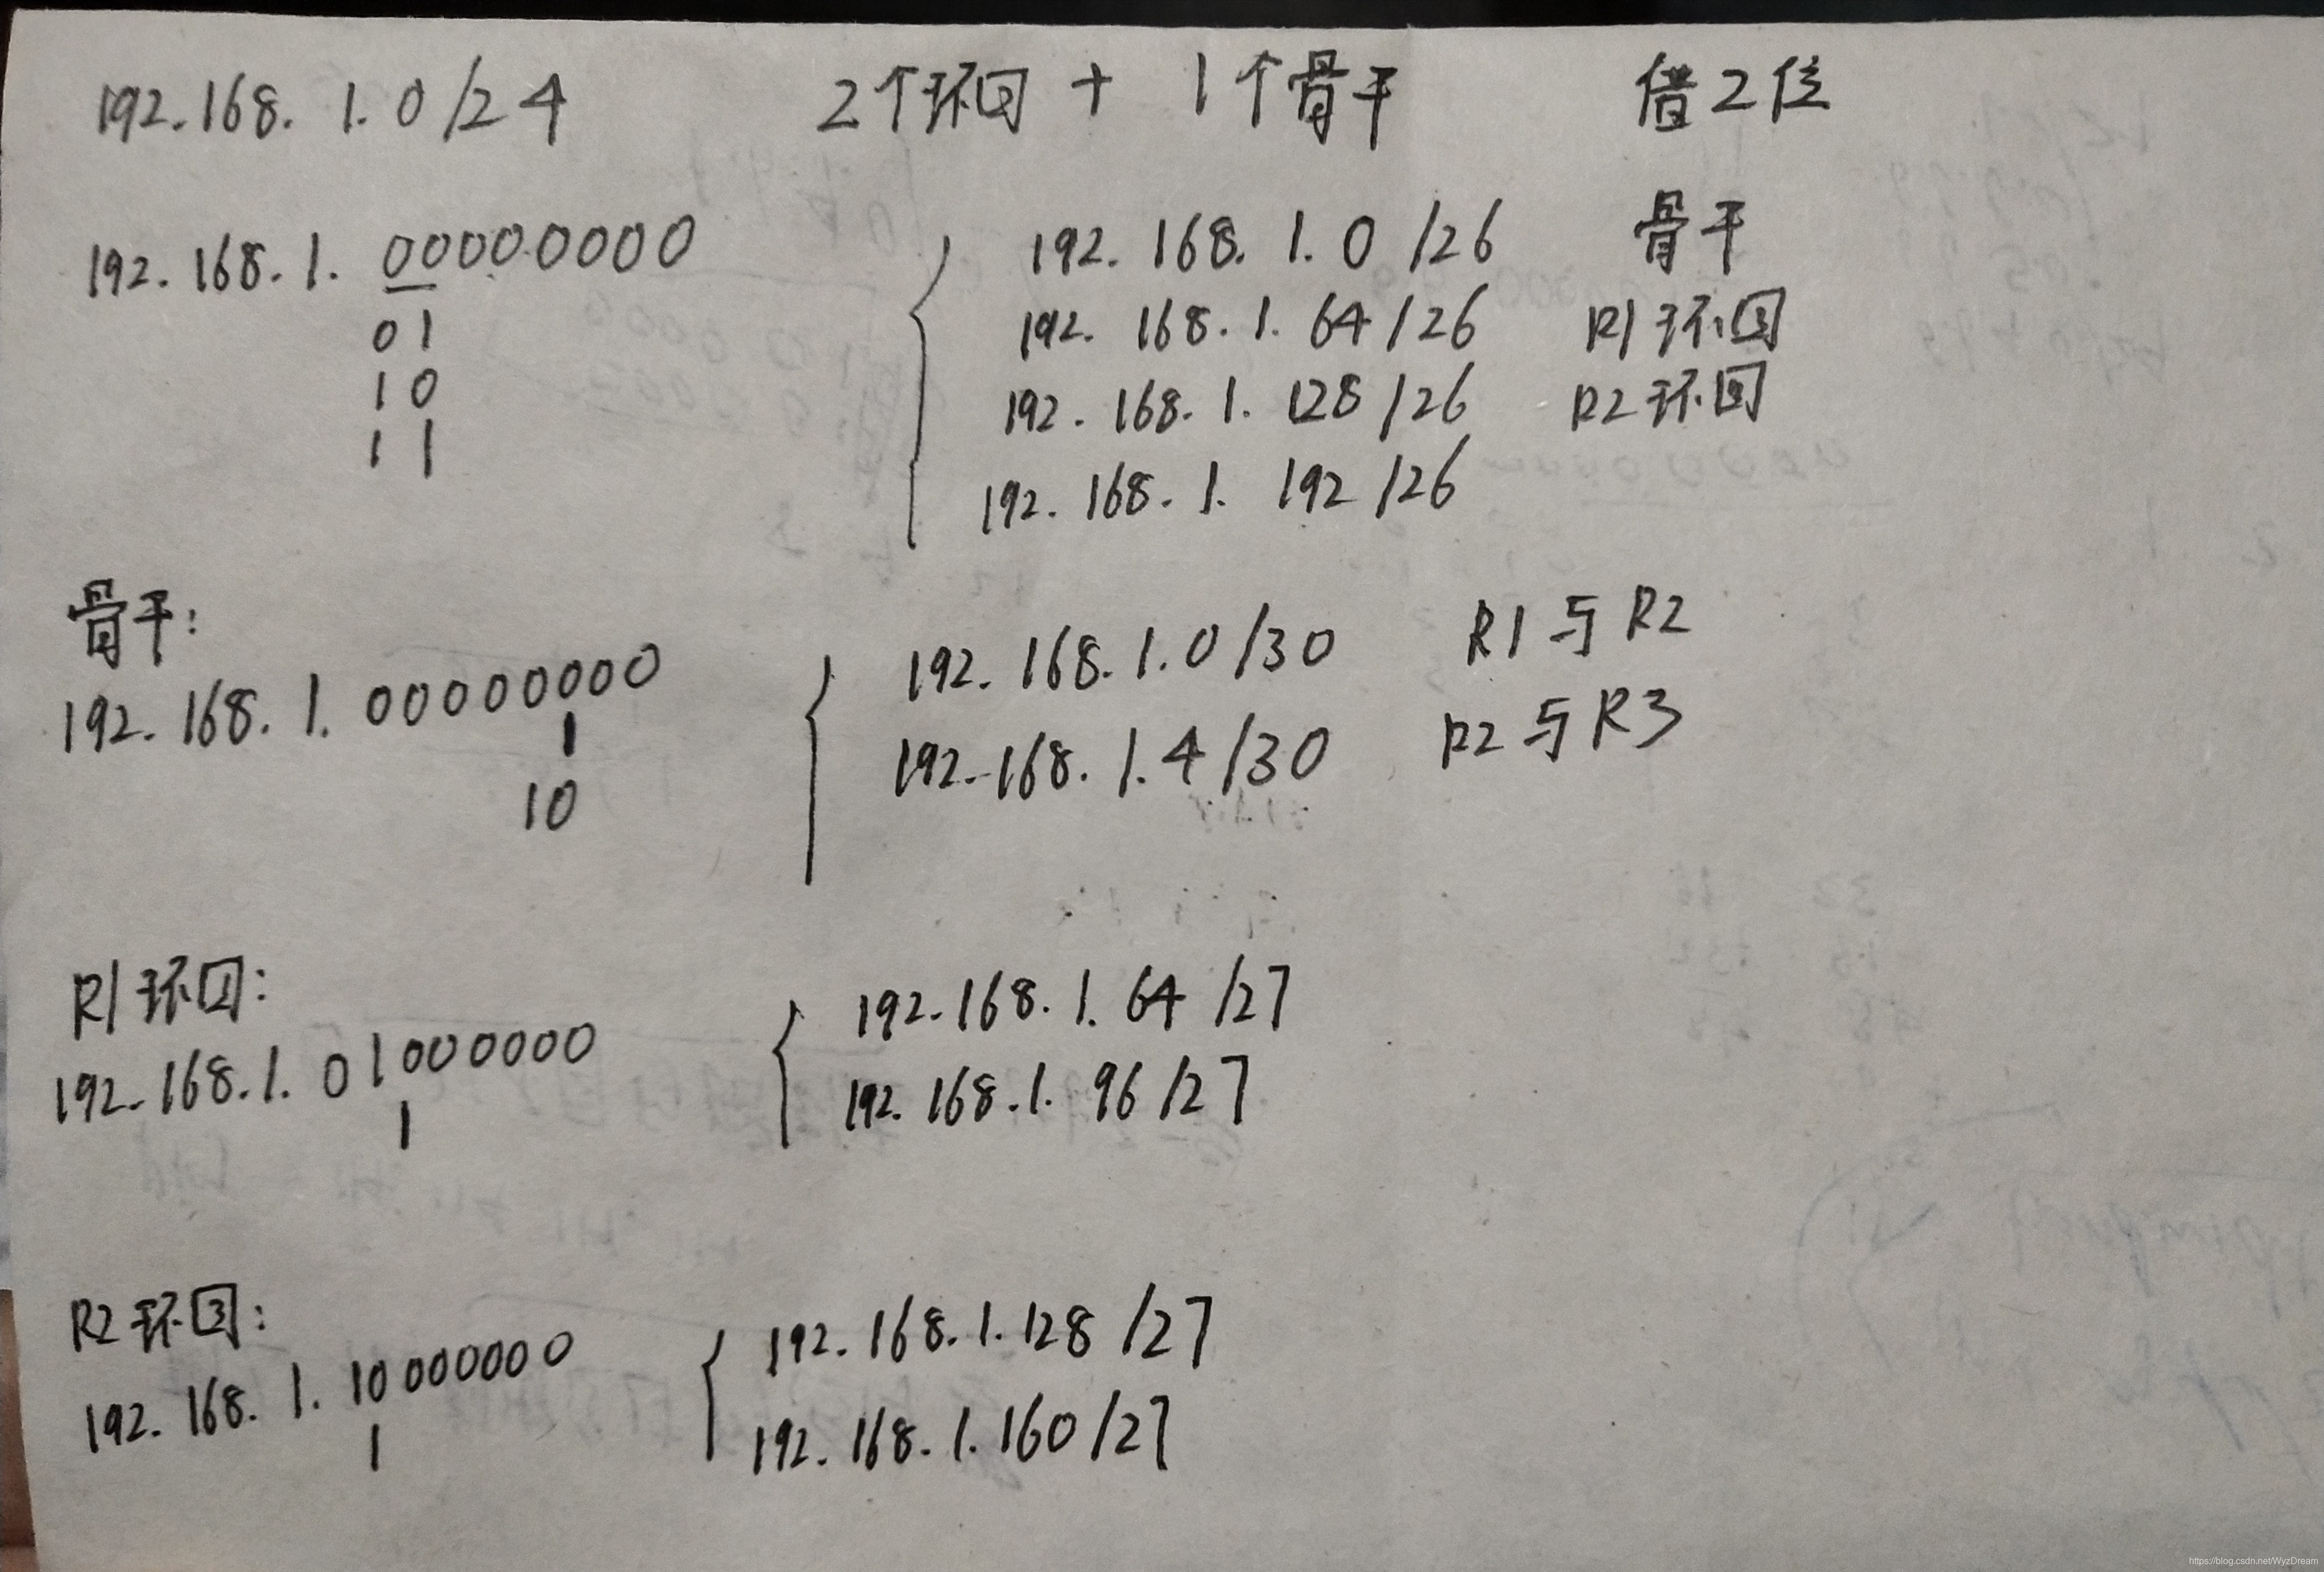 192.168.1.0/24 2个环回 + 1个骨干 借2位
192.168.1.00000000
01
10
11
192.168.1.0/26 骨干
192.168.1.64/26 R1环回
192.168.1.128/26 R2环回
192.168.1.192/26
骨干:
192.168.1.00000000
1
10
192.168.1.0/30 R1与R2
192.168.1.4/30 R2与R3
R1环回:
192.168.1.01000000
1
192.168.1.64/27
192.168.1.96/27
R2环回:
192.168.1.10000000
1
192.168.1.128/27
192.168.1.160/27
https://blog.csdn.net/WyzDream